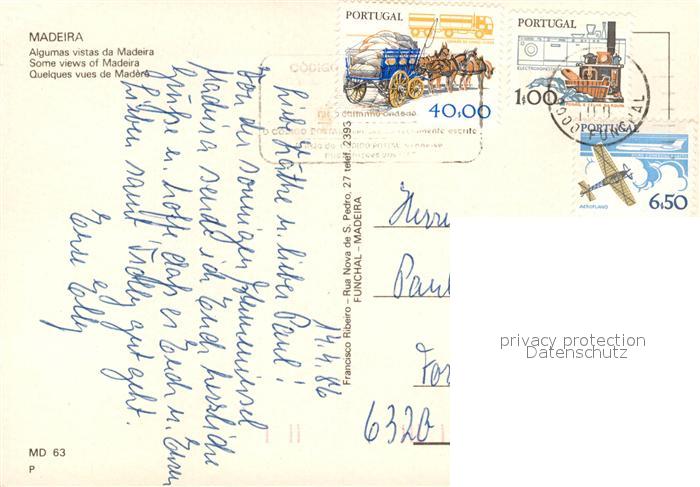 MADEIRA
Algumas vistas da Madeira
Some views of Madeira
Quelques vues de Madère
14.4.86
Liebe Käthe u. lieber Paul!
Von der sonnigen Blumeninsel
Madeira sende ich Euch herzliche
Grüße u. hoffe, daß es Euch u. Euren
Lieben samt Teddy gut geht.
Eure Elly
MD 63
P
Francisco Ribeiro – Rua Nova de S. Pedro, 27 telef. 2393
FUNCHAL – MADEIRA
PORTUGAL
40,00
PORTUGAL
1,00
PORTUGAL
AEROPLANO
6,50
CÓDIGO
O CÓDIGO POSTAL
FUNCHAL
Herrn
Paul
6320
privacy protection
Datenschutz